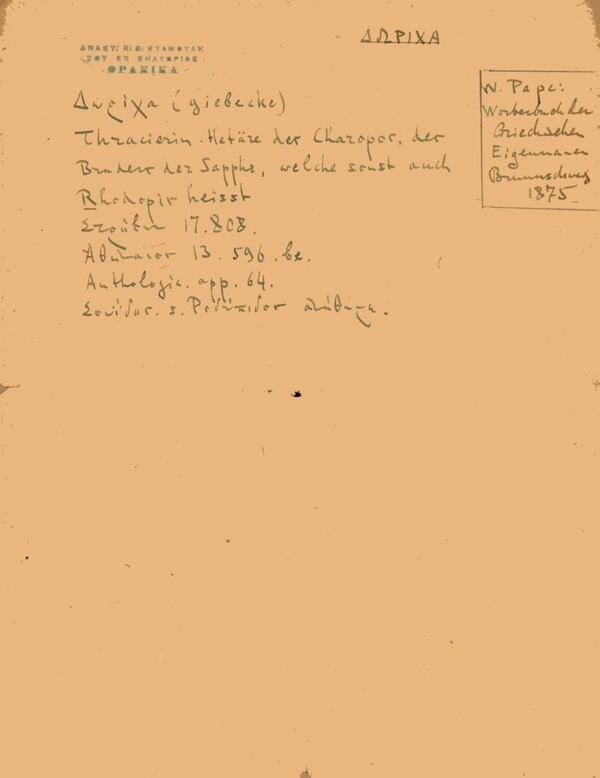 ΔΩΡΙΧΑ
ΑΝΑΣΤ. Κ. Π. ΣΤΑΜΟΥΛΗ
ΤΟΥ ΕΚ ΣΗΛΥΒΡΙΑΣ
ΘΡΑΚΙΚΑ
W. Pape:
Worterbuch der
Griechschen
Eigennamen
Braunschweg
1875
Δωρίχα (giebecke)
Thracierin. Hetäre der Charopos, der
Bruders der Sappho, welche sonst auch
Rhodopis heisst
Στράβων 17.808.
Αθήναιος 13. 596. be.
Anthologia. app. 64.
Σουίδας. s. Ροδώπιδος